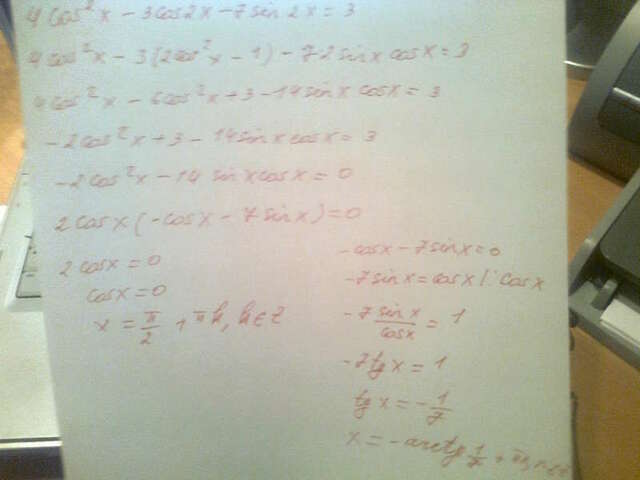 4cos²x - 3cos2x - 7sin2x = 3
4cos²x - 3(2cos²x - 1) - 7 2sinx cosx = 3
4cos²x - 6cos²x + 3 - 14sinx cosx = 3
-2cos²x + 3 - 14sinx cosx = 3
-2cos²x - 14 sinx cosx = 0
2cosx (-cosx - 7sinx) = 0
2cosx = 0
cosx = 0
x = π/2 + πk, k∈Z
-cosx - 7sinx = 0
-7sinx = cosx |: cosx
-7 sinx/cosx = 1
-7tgx = 1
tgx = -1/7
x = -arctg 1/7 + πn, n∈Z